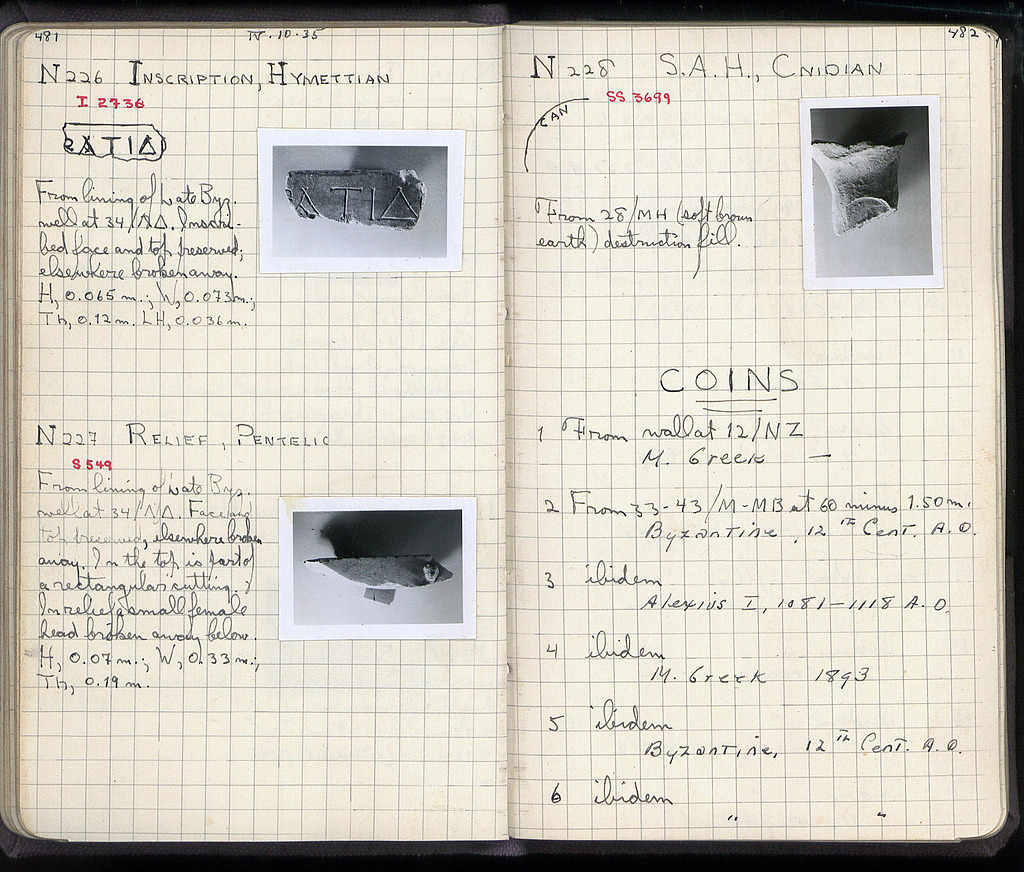 481
IV.10.35
N226 INSCRIPTION, HYMETTIAN
I 2736
ΑΤΙΔ
ΑΤΙΔ
From lining of Late Byz.
well at 34/ΛΔ. Inscri-
bed face and top preserved;
elsewhere broken away.
H, 0.065 m.; W, 0.073 m.;
Th, 0.12 m. LH, 0.036 m.
N227 RELIEF, PENTELIC
S 549
From lining of Late Byz.
well at 34/ΛΔ. Face and
top preserved, elsewhere broken
away. In the top is part of
a rectangular cutting.
In relief a small female
head broken away below.
H, 0.07 m.; W, 0.33 m.;
Th, 0.19 m.
482
N 228 S.A.H., CNIDIAN
SS 3699
CAN
From 28/MH (soft brown
earth) destruction fill.
COINS
1 From wall at 12/NZ
M. Greek —
2 From 33-43/M-MB at 60 minus 1.50 m.
Byzantine, 12th Cent. A.D.
3 ibidem
Alexius I, 1081-1118 A.D.
4 ibidem
M. Greek 1893
5 ibidem
Byzantine, 12th Cent. A.D.
6 ibidem
" "